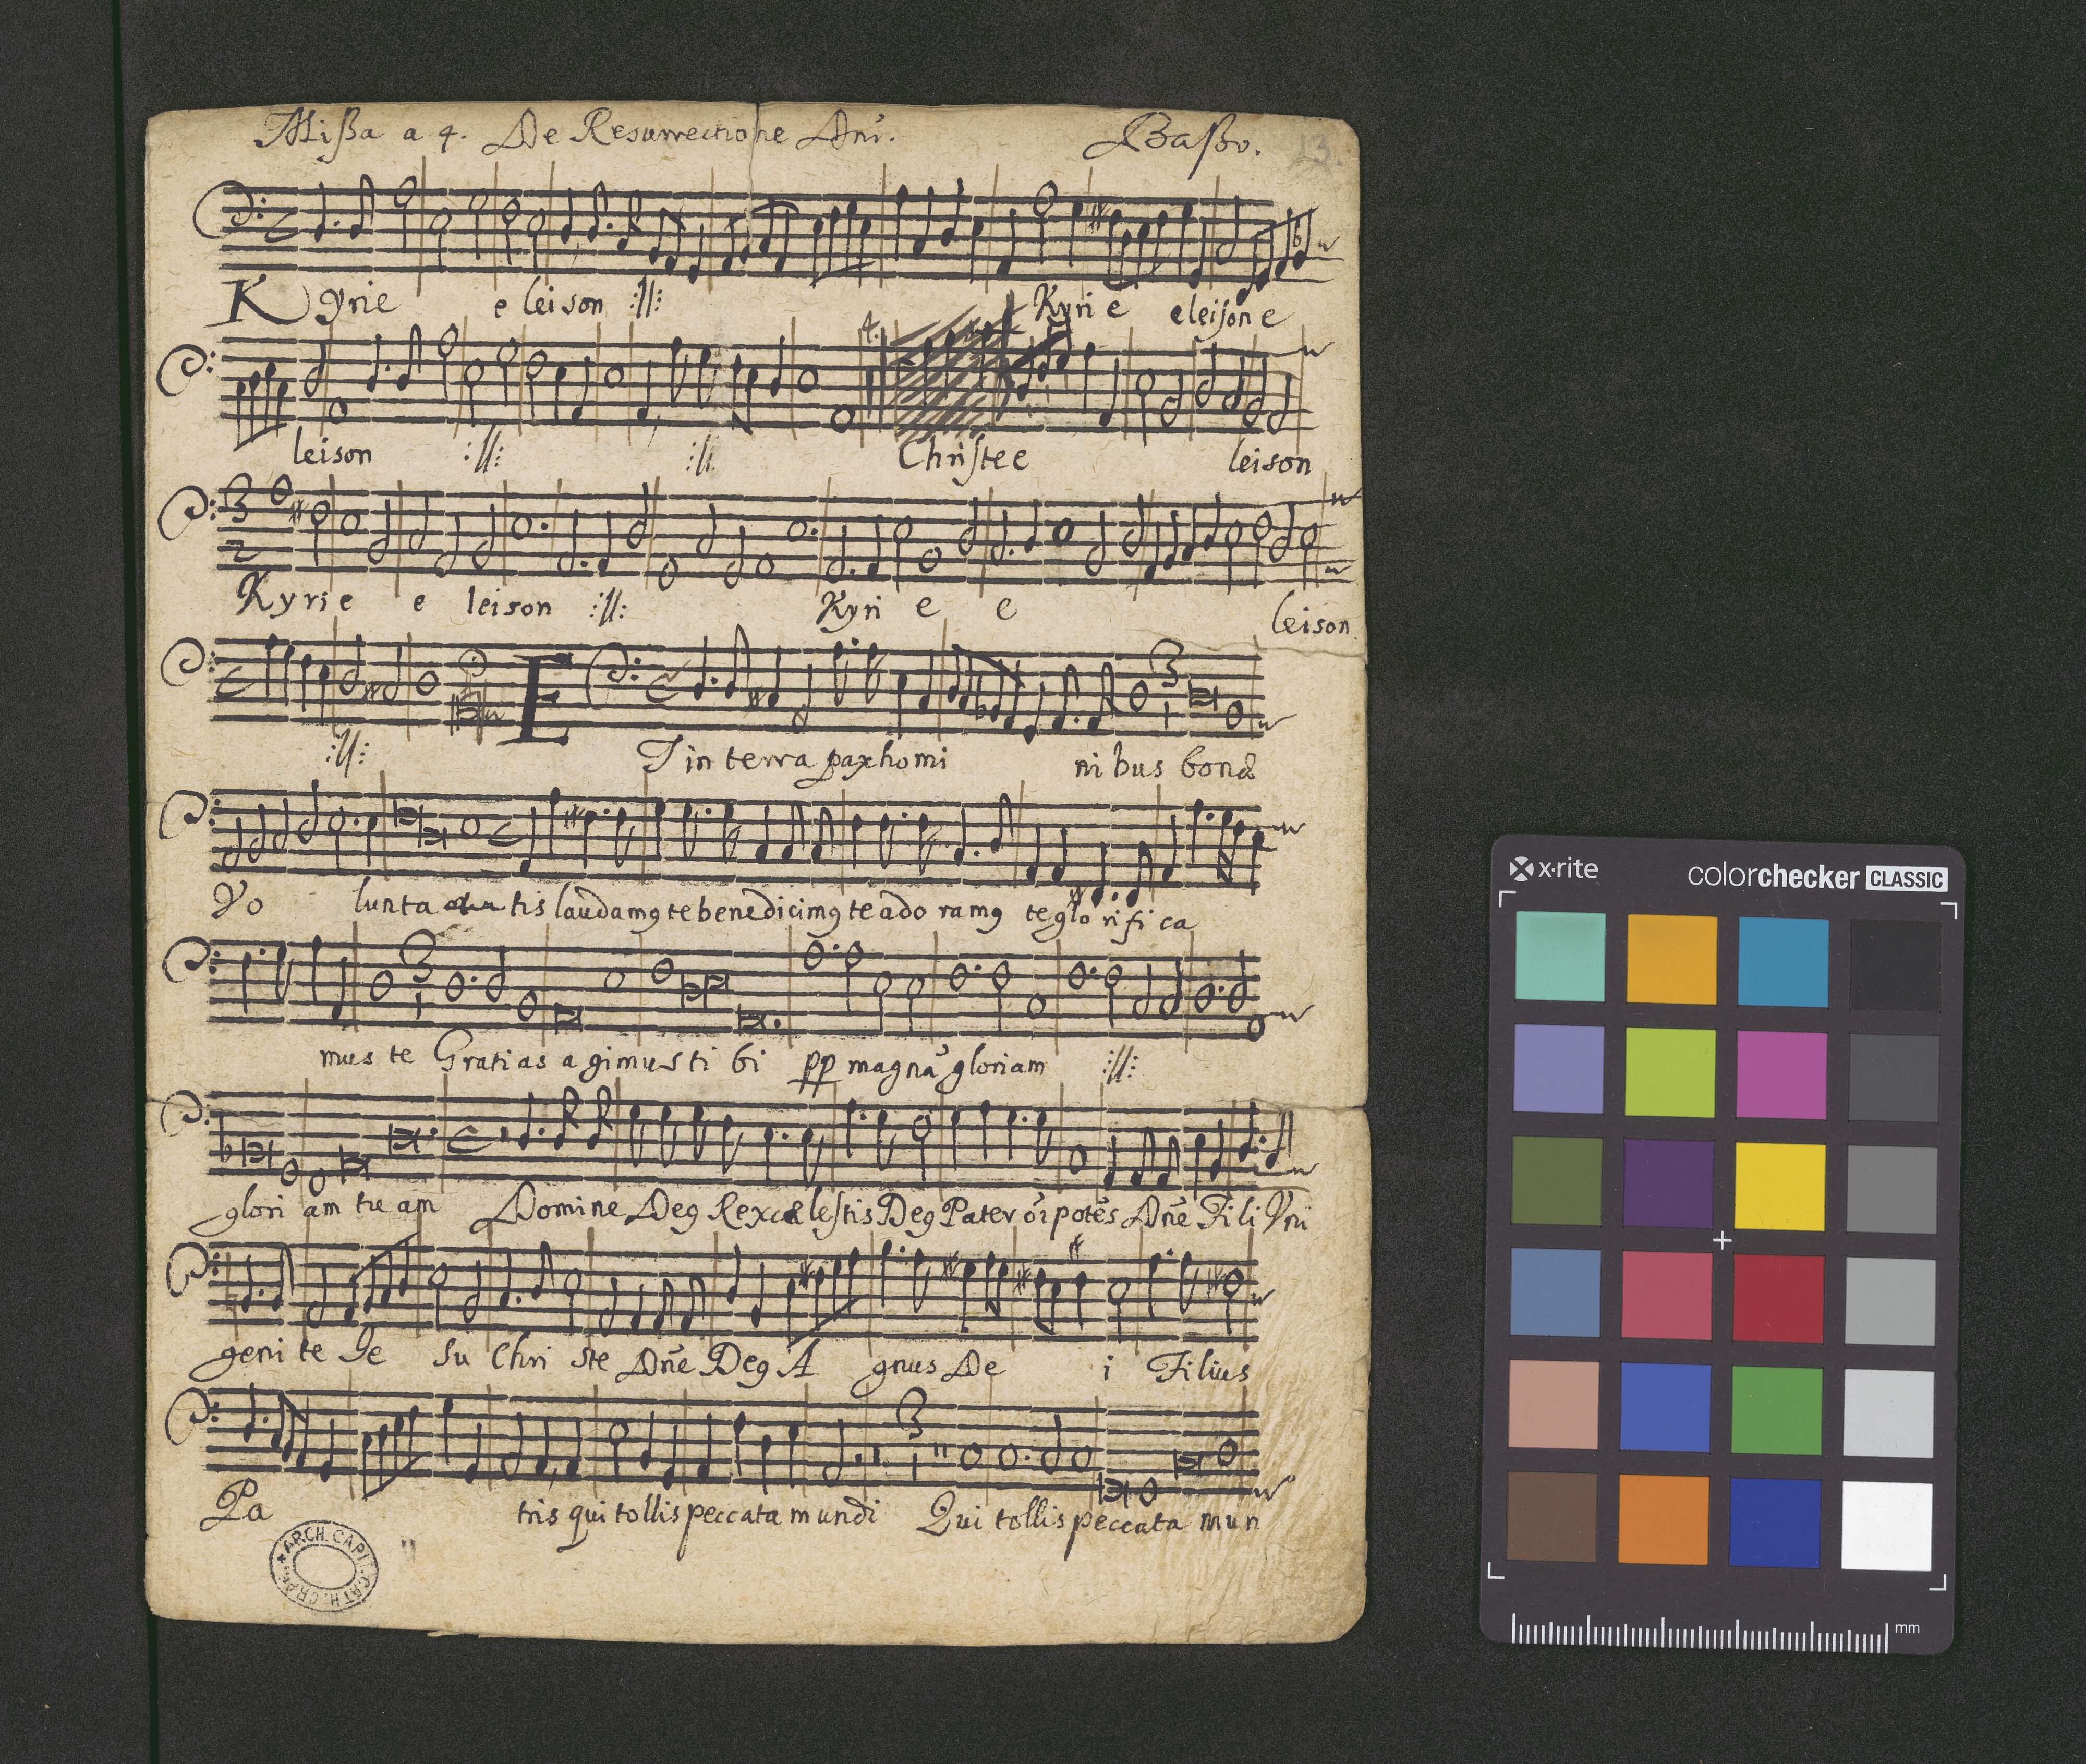 Missa a 4. De Resurrectione Dnī. Basso. 13.
Kyrie e leison :||: Kyri e eleison e
4.
leison :||: :||: Christe e leison
3
2
Kyrie e leison :||: Kyri e e leison
:||: ET in terra pax homi ni bus bonæ
3
1
Vo lunta tis laudamꝯ te benedicimꝯ te ado ramꝯ te glo ri fi ca
3
1
mus te Gratias a gimus ti bi pp magnā gloriam :||:
glori am tu am Domine Deꝯ Rex cæ lestis Deꝯ Pater oīpotēs Dnē Fili Vni
geni te Je su Chri ste Dnē Deꝯ A gnus De i Filius
3
1
Pa tris qui tollis peccata mundi Qui tollis peccata mun
ARCH. CAPIT. CATH. CRAC.
x-rite
colorchecker CLASSIC
mm